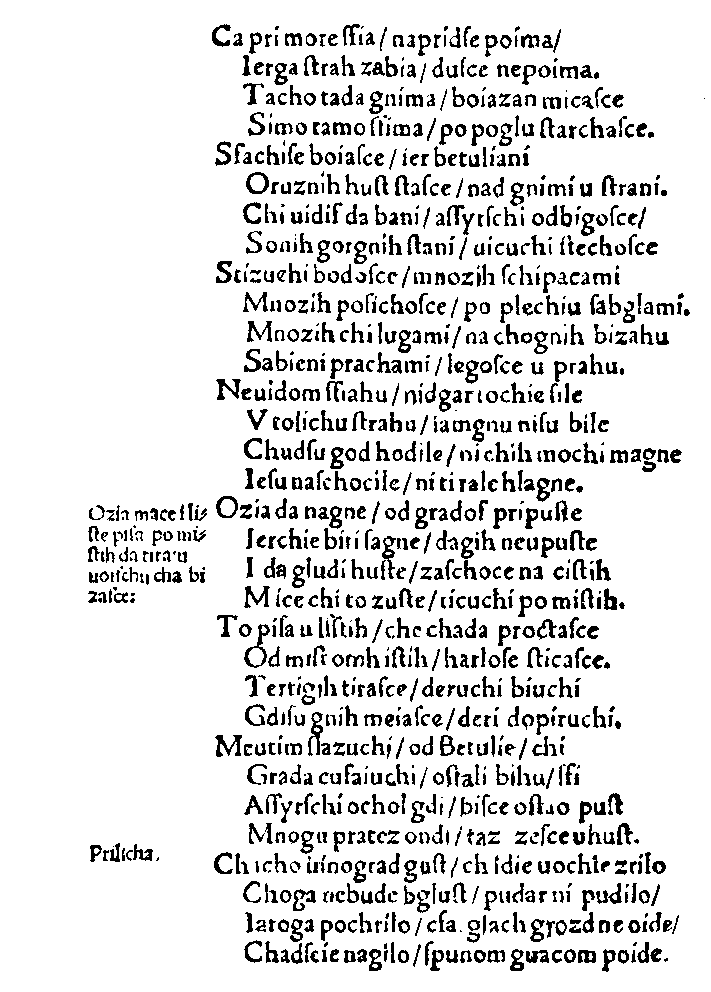 Ca pri more ſſia / napridſe poima /
Ierga ſtrah zabia / duſce nepoima.
Tacho tada gnima / boiazan micaſce
Simo tamo ſſima / po poglu ſtarchaſce.
Sfachiſe boiaſce / ier betuliani
Oruznih huſt ſtaſce / nad gnimi u ſtrani.
Chi uidiſ da bani / aſſyrſchi odbigoſce /
Sonih gorgnih ſtani / uicuchi ſtechoſce
Stizuchi bodoſce / mnozih ſchipacami
Mnozih poſichoſce / po plechiu ſabglami.
Mnozih chi lugami / na chognih bizahu
Sabieni prachami / legoſce u prahu.
Neuidom ſſiahu / nidgar tochie ſile
V tolichu ſtrahu / iamgnu niſu bile
Chudſu god hodile / ni chih mochi magne
Ieſu naſchocile / ni ti ralchlagne.
Ozia da nagne / od gradof pripuſte
Ierchie biti ſagne / dagih neupuſte
I da gludi huſte / zaſchoce na ciſtih
Mice chi to zuſte / ticuchi po miſtih.
Ozia mace i li⸗
ſte piſa po mi⸗
ſtih da tira u
uoiſchu cha bi
zaſce:
To piſa u liſtih / che chada proctaſce
Od miſt omh iſtih / harloſe ſticaſce.
Tertigih tiraſce / deruchi biuchi
Gdiſu gnih meiaſce / deri dopiruchi.
Meutim ſlazuchi / od Betulie / chi
Grada cuſaiuchi / oſtali bihu / ſſi
Aſſyrſchi ochol gdi / biſce oſtao puſt
Mnogu pratez ondi / taz zeſce uhuſt.
Prilicha.
Chicho uinograd guſt / ch idie uochie zrilo
Choga nebude bgluſt / pudar ni pudilo /
Iaroga pochrilo / cſa. glach grozd ne oide /
Chadſcie nagilo / ſpunom guacom poide.